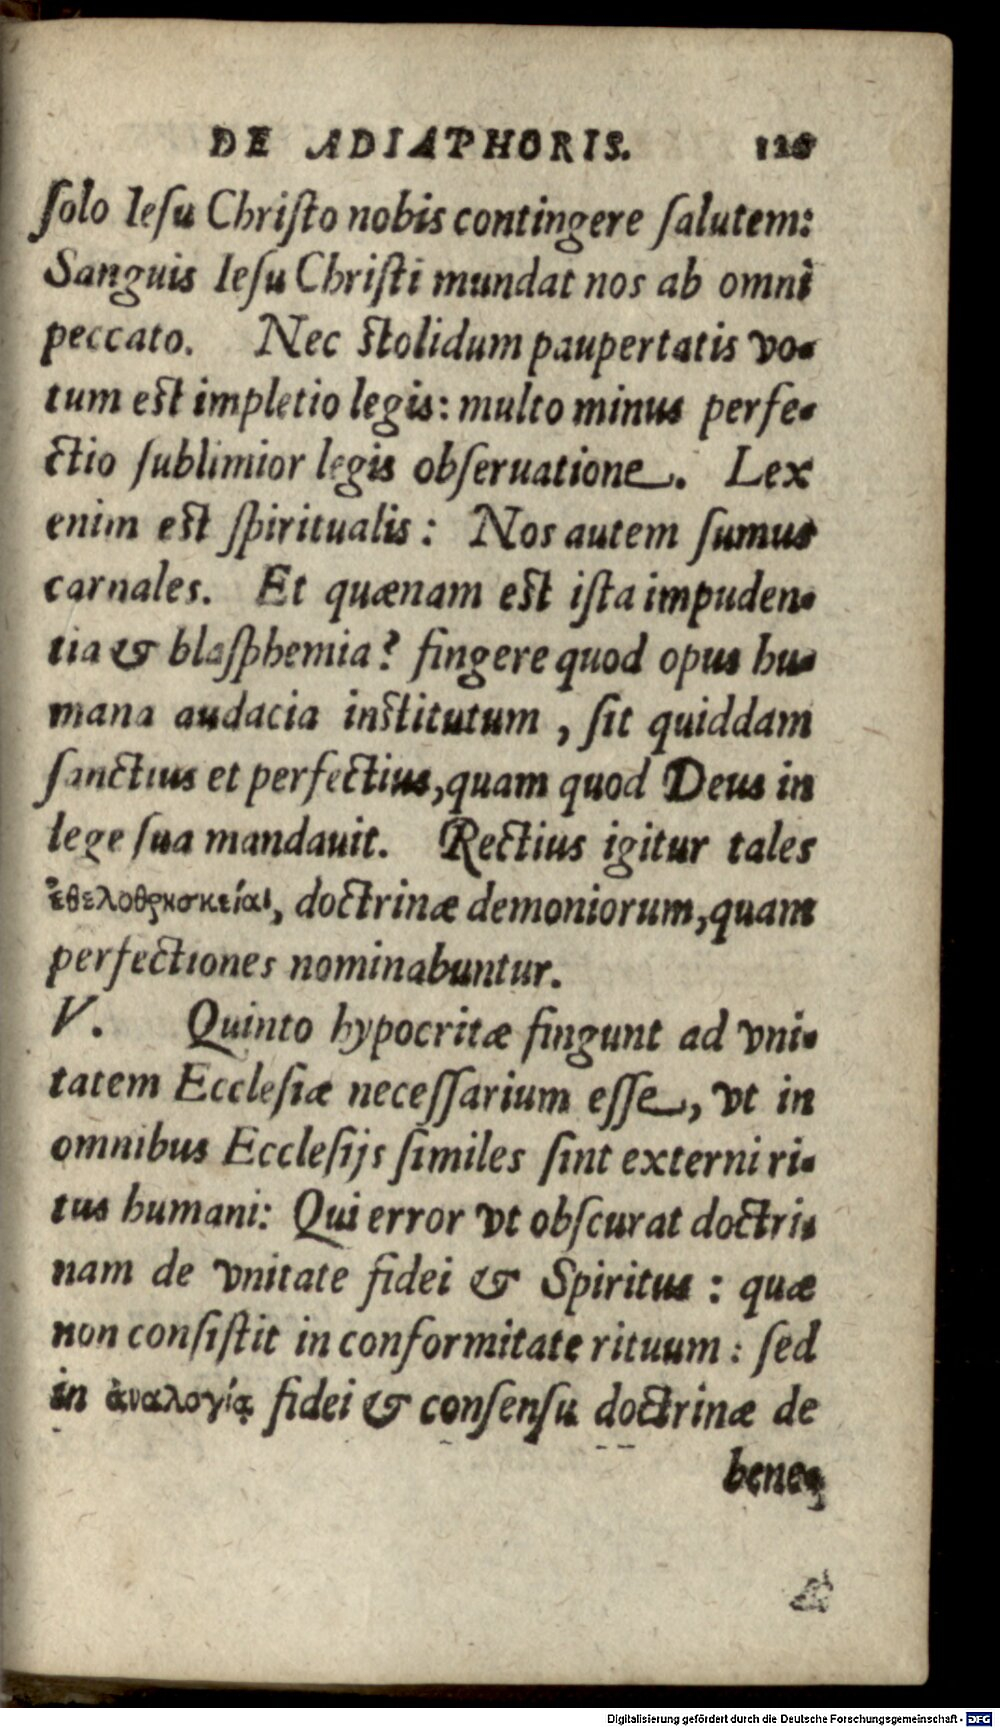 DE ADIAPHORIS.
ſolo Ieſu Chriſto nobis contingere ſalutem:
Sanguis Ieſu Chriſti mundat nos ab omni
peccato. Nec ſtolidum paupertatis vo-
tum eſt impletio legis: multo minus perfe-
ctio ſublimior legis obſeruatione. Lex
enim eſt ſpiritualis: Nos autem ſumus
carnales. Et quænam eſt iſta impuden-
tia & blaſphemia? fingere quod opus hu-
mana audacia inſtitutum, ſit quiddam
ſanctius et perfectius, quam quod Deus in
lege ſua mandauit. Rectius igitur tales
ἐθελοθρησκείαι, doctrinæ demoniorum, quam
perfectiones nominabuntur.
V. Quinto hypocritæ fingunt ad vni-
tatem Eccleſiæ neceſſarium eſſe, vt in
omnibus Eccleſijs ſimiles ſint externi ri-
tus humani: Qui error vt obſcurat doctri-
nam de vnitate fidei & Spiritus: quæ
non conſiſtit in conformitate rituum: ſed
in ἀναλογίᾳ fidei & conſenſu doctrinæ de
bene-
Digitalisierung gefördert durch die Deutsche Forschungsgemeinschaft - DFG